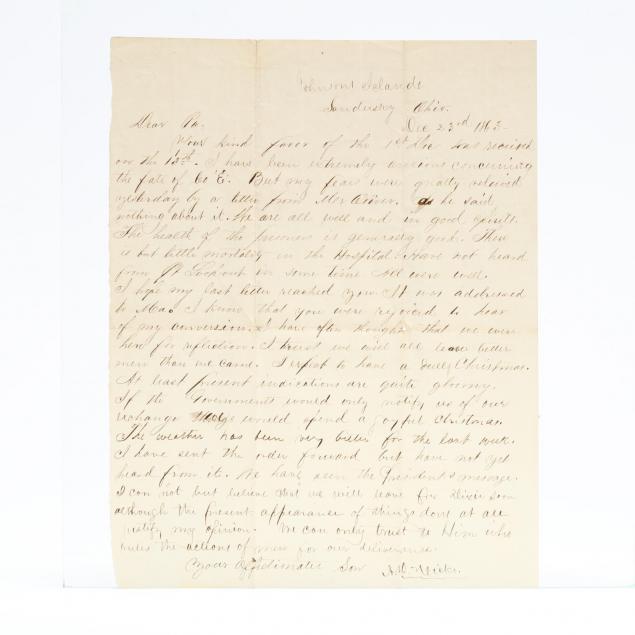 Johnsons Islands
Sandusky Ohio.
Dec 23rd 1863
Dear Pa.
Your kind favor of the 1st Dec was received
on the 13th. I have been extremely anxious concerning
the fate of Co E. But my fears were greatly relieved
yesterday by a letter from Mr as he said
nothing about it. We are all well and in good spirits.
The health of the prisoners is generally good. There
is but little mortality in the Hospital. Have not heard
from Pt Lookout in some time all were well.
I hope my last letter reached you. It was addressed
to Ma. I know that you were rejoiced to hear
of my conversion. I have often thought that we were
here for reflection. I trust we will all leave better
men than we came. I expect to have a dull Christmas.
At least present indications are quite gloomy.
If the Governments would only notify us of our
exchange would spend a joyful Christmas.
The weather has been very bitter for the last week.
I have sent the order forward but have not yet
heard from it. We have seen the Presidents message.
I can not but believe that we will leave for Dixie soon
although the present appearance of things dont at all
justify my opinion. We can only trust to Him who
rules the actions of men for our deliverance.
Your Affectionate Son